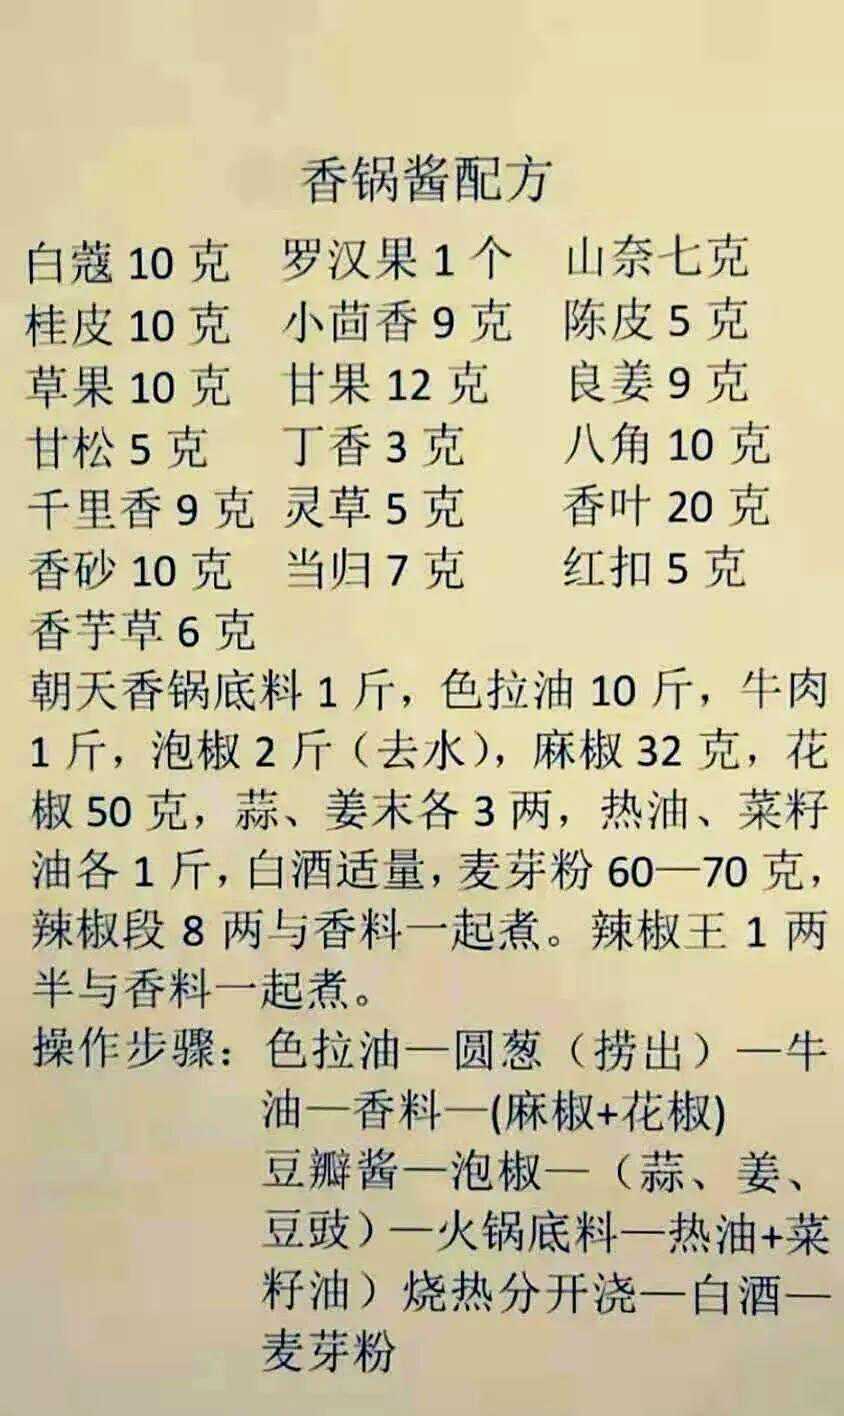 香锅酱配方
白蔻 10 克 罗汉果 1 个 山奈七克
桂皮 10 克 小茴香 9 克 陈皮 5 克
草果 10 克 甘果 12 克 良姜 9 克
甘松 5 克 丁香 3 克 八角 10 克
千里香 9 克 灵草 5 克 香叶 20 克
香砂 10 克 当归 7 克 红扣 5 克
香芋草 6 克
朝天香锅底料 1 斤，色拉油 10 斤，牛肉
1 斤，泡椒 2 斤（去水），麻椒 32 克，花
椒 50 克，蒜、姜末各 3 两，热油、菜籽
油各 1 斤，白酒适量，麦芽粉 60—70 克，
辣椒段 8 两与香料一起煮。辣椒王 1 两
半与香料一起煮。
操作步骤：色拉油—圆葱（捞出）—牛
油—香料—(麻椒+花椒)
豆瓣酱—泡椒—（蒜、姜、
豆豉）—火锅底料—热油+菜
籽油）烧热分开浇—白酒—
麦芽粉